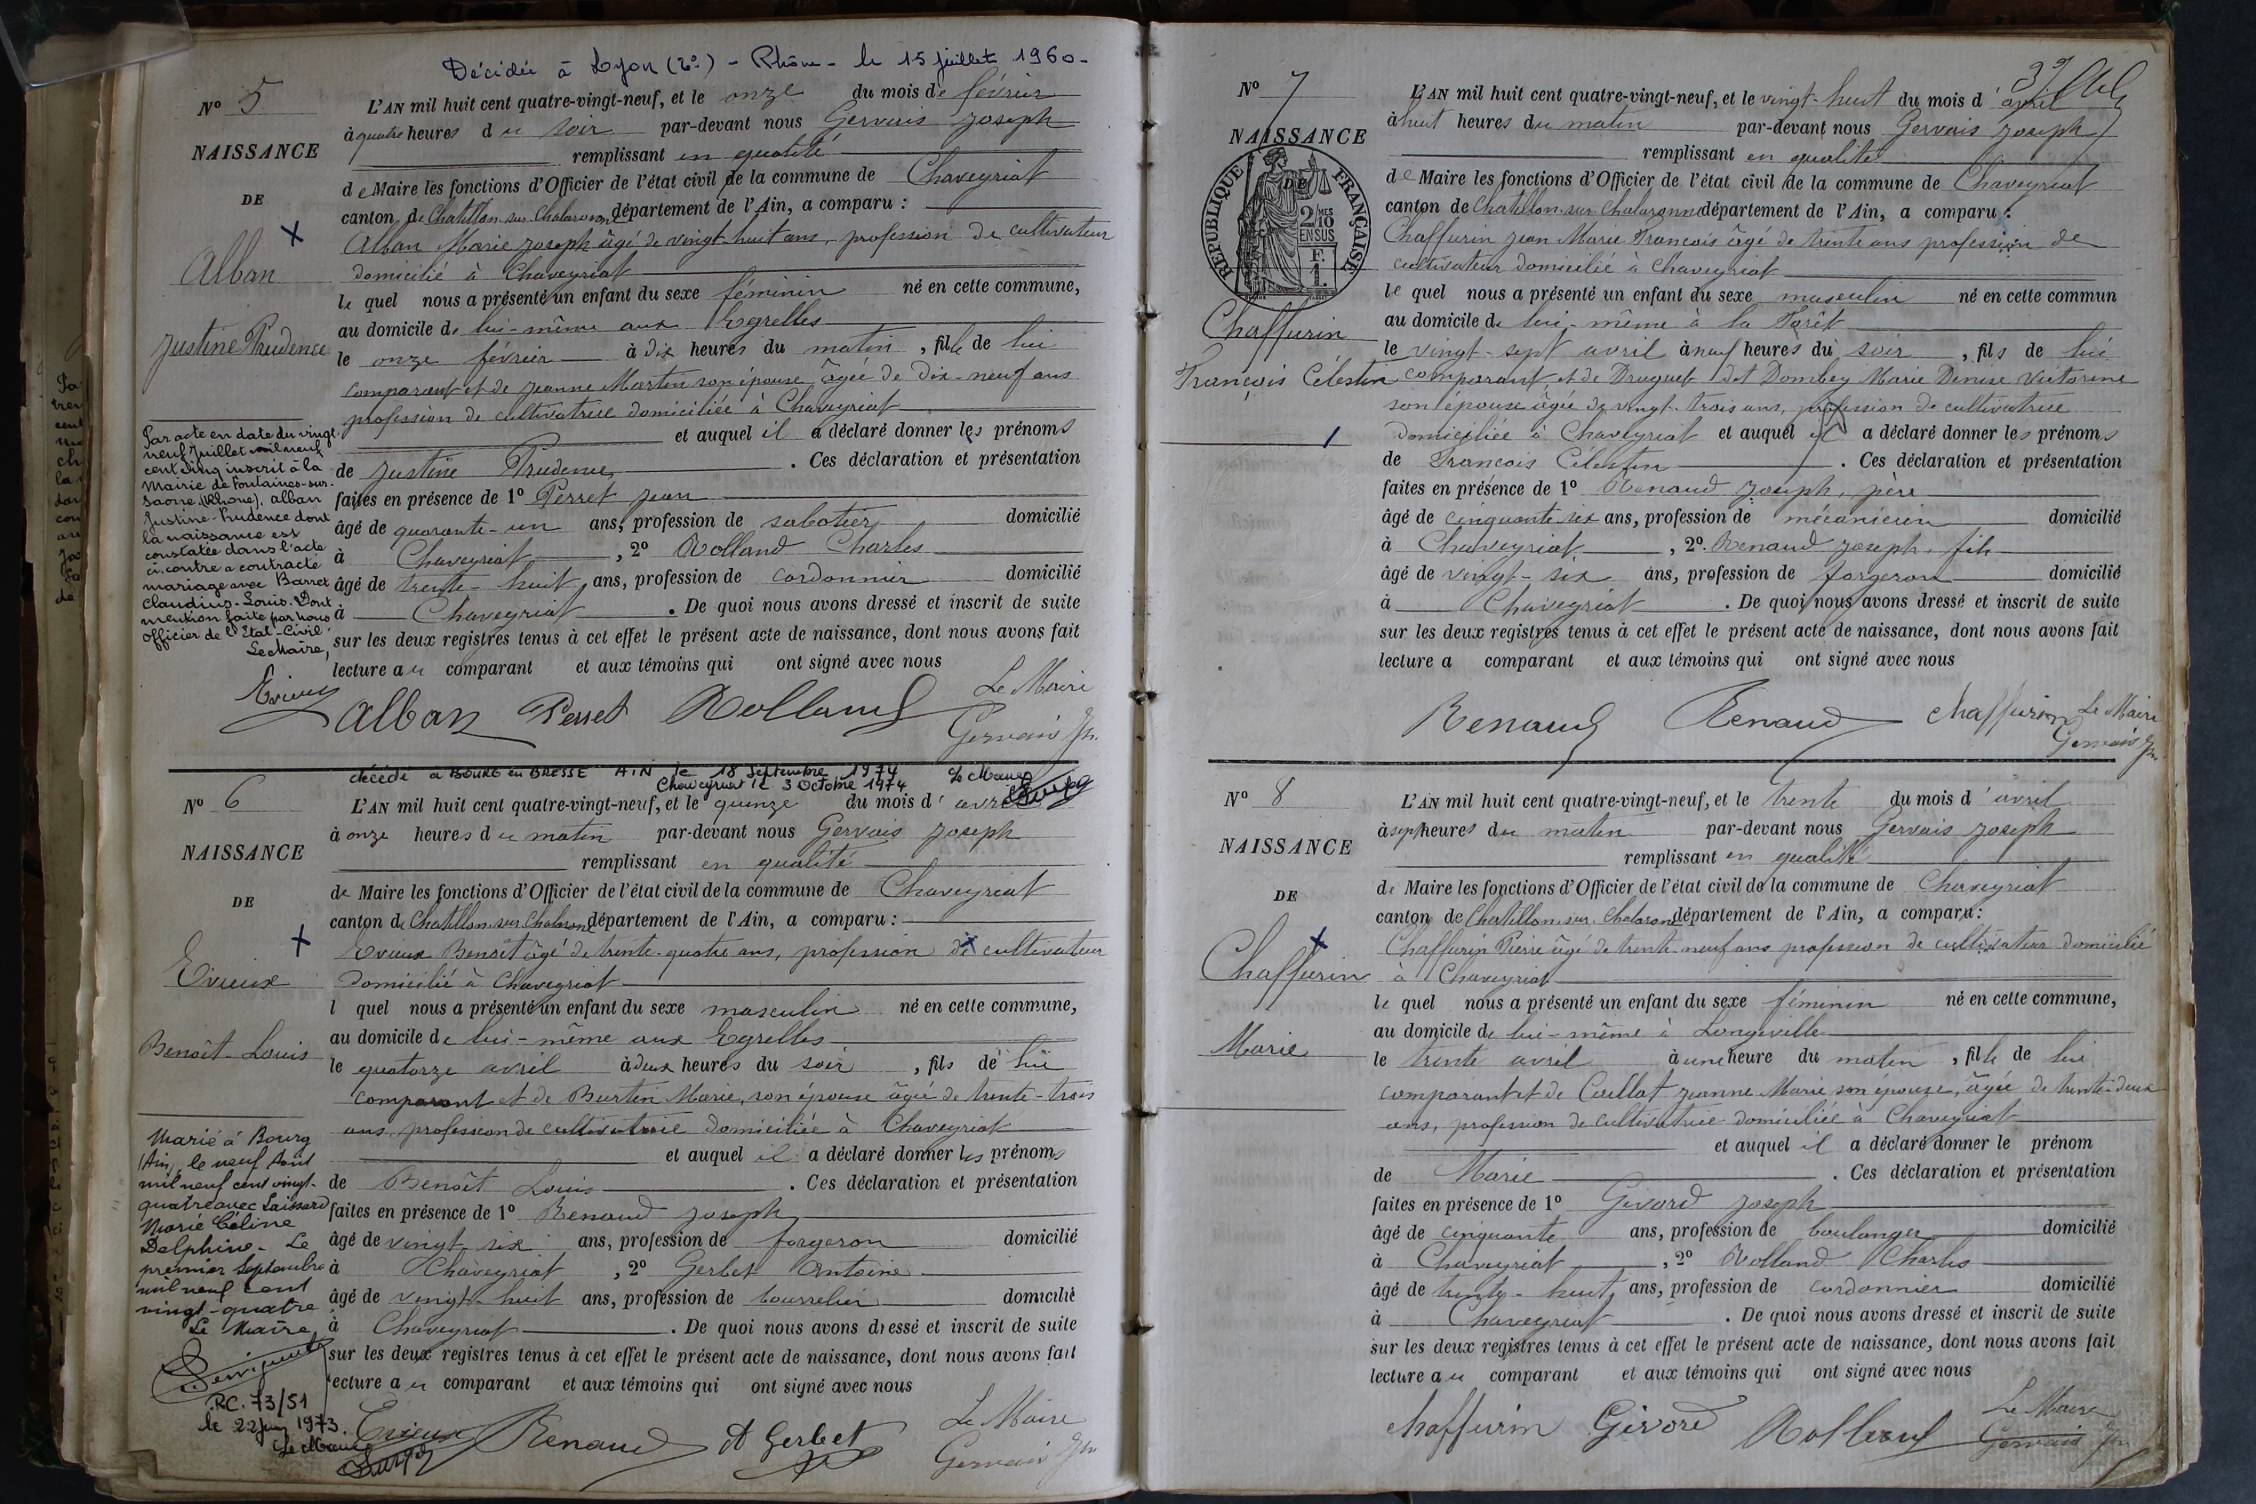 Décédée à Lyon (2e) - Rhône - le 15 juillet 1960 -
No 5
NAISSANCE
DE
Alban
Justine Prudence
L'AN mil huit cent quatre-vingt-neuf, et le onze du mois de février
à quatre heures du soir par-devant nous Gervais Joseph
remplissant en qualité
de Maire les fonctions d'Officier de l'état civil de la commune de Chaveyriat
canton de Chatillon-sur-Chalaronne département de l'Ain, a comparu :
Alban Marie Joseph âgé de vingt-huit ans, profession de cultivateur
domicilié à Chaveyriat
le quel nous a présenté un enfant du sexe féminin né en cette commune,
au domicile de lui-même aux Egrelles
le onze février à dix heures du matin, fille de lui
comparant et de Jeanne Marten son épouse âgée de dix-neuf ans
profession de cultivatrice domiciliée à Chaveyriat
et auquel il a déclaré donner les prénoms
de Justine Prudence. Ces déclaration et présentation
faites en présence de 1o Perret Jean
âgé de quarante-un ans, profession de sabotier domicilié
à Chaveyriat, 2o Rolland Charles
âgé de trente-huit ans, profession de cordonnier domicilié
à Chaveyriat. De quoi nous avons dressé et inscrit de suite
sur les deux registres tenus à cet effet le présent acte de naissance, dont nous avons fait
lecture au comparant et aux témoins qui ont signé avec nous
Par acte en date du vingt
neuf juillet mil neuf
cent cinq inscrit à la
Mairie de Fontaines-sur-
Saone (Rhone). Alban
Justine-Prudence dont
la naissance est
constatée dans l'acte
ci-contre a contracté
mariage avec Barret
Claudius-Louis. Dont
mention faite par nous
officier de l'Etat-Civil.
Le Maire,
Evieux
Alban Perret Rolland Le Maire
Gervais Jh
décédé à BOURG en BRESSE AIN le 18 Septembre 1974
Chaveyriat le 3 Octobre 1974 Le Maire
No 6
NAISSANCE
DE
Evieux
Benoît-Louis
L'AN mil huit cent quatre-vingt-neuf, et le quinze du mois d'avril
à onze heures du matin par-devant nous Gervais Joseph
remplissant en qualité
de Maire les fonctions d'Officier de l'état civil de la commune de Chaveyriat
canton de Chatillon-sur-Chalaronne département de l'Ain, a comparu :
Evieux Benoît âgé de trente-quatre ans, profession de cultivateur
domicilié à Chaveyriat
l quel nous a présenté un enfant du sexe masculin né en cette commune,
au domicile de lui-même aux Egrelles
le quatorze avril à deux heures du soir, fils de lui
comparant et de Burtin Marie, son épouse âgée de trente-trois
ans, profession de cultivatrice domiciliée à Chaveyriat
et auquel il a déclaré donner les prénoms
de Benoît Louis. Ces déclaration et présentation
faites en présence de 1o Renaud Joseph
âgé de vingt-six ans, profession de forgeron domicilié
à Chaveyriat, 2o Gerbet Antoine
âgé de vingt-huit ans, profession de bourrelier domicilié
à Chaveyriat. De quoi nous avons dressé et inscrit de suite
sur les deux registres tenus à cet effet le présent acte de naissance, dont nous avons fait
lecture au comparant et aux témoins qui ont signé avec nous
Marié à Bourg
(Ain) le neuf Aout
mil neuf cent vingt-
quatre avec Laissard
Marie Céline
Delphine - Le
premier Septembre
mil neuf cent
vingt-quatre
Le Maire
RC. 73/51
le 22 Juin 1973.
Le Maire
Evieux Renaud A Gerbet Le Maire
Gervais Jh
No 7
NAISSANCE
RÉPUBLIQUE FRANÇAISE
DE
2/10 MES
EN SUS
F.
1.
Chaffurin
François Célestin
L'AN mil huit cent quatre-vingt-neuf, et le vingt-huit du mois d'avril
à huit heures du matin par-devant nous Gervais Joseph
remplissant en qualité
de Maire les fonctions d'Officier de l'état civil de la commune de Chaveyriat
canton de Chatillon-sur-Chalaronne département de l'Ain, a comparu :
Chaffurin Jean Marie François âgé de trente ans profession de
cultivateur domicilié à Chaveyriat
le quel nous a présenté un enfant du sexe masculin né en cette commun
au domicile de lui-même à la Forêt
le vingt-sept avril à neuf heures du soir, fils de lui
comparant et de Druguet dit Dombey Marie Denise Victorine
son épouse âgée de vingt-trois ans, profession de cultivatrice
domiciliée à Chaveyriat et auquel il a déclaré donner les prénoms
de François Célestin. Ces déclaration et présentation
faites en présence de 1o Renaud Joseph, père
âgé de cinquante six ans, profession de mécanicien domicilié
à Chaveyriat, 2o Renaud Joseph, fils
âgé de vingt-six ans, profession de forgeron domicilié
à Chaveyriat. De quoi nous avons dressé et inscrit de suite
sur les deux registres tenus à cet effet le présent acte de naissance, dont nous avons fait
lecture a comparant et aux témoins qui ont signé avec nous
Renaud Renaud Chaffurin Le Maire
Gervais Jh
No 8
NAISSANCE
DE
Chaffurin
Marie
L'AN mil huit cent quatre-vingt-neuf, et le trente du mois d'avril
à sept heures du matin par-devant nous Gervais Joseph
remplissant en qualité
de Maire les fonctions d'Officier de l'état civil de la commune de Chaveyriat
canton de Chatillon-sur-Chalaronne département de l'Ain, a comparu :
Chaffurin Pierre âgé de trente-neuf ans profession de cultivateur domicilié
à Chaveyriat
le quel nous a présenté un enfant du sexe féminin né en cette commune,
au domicile de lui-même à Longeville
le trente avril à une heure du matin, fille de lui
comparant et de Cuillat Jeanne Marie son épouse, âgée de trente-deux
ans, profession de cultivatrice domiciliée à Chaveyriat
et auquel il a déclaré donner le prénom
de Marie. Ces déclaration et présentation
faites en présence de 1o Givord Joseph
âgé de cinquante ans, profession de boulanger domicilié
à Chaveyriat, 2o Rolland Charles
âgé de trente-huit ans, profession de cordonnier domicilié
à Chaveyriat. De quoi nous avons dressé et inscrit de suite
sur les deux registres tenus à cet effet le présent acte de naissance, dont nous avons fait
lecture au comparant et aux témoins qui ont signé avec nous
Chaffurin Givord Rolland Le Maire
Gervais Jh